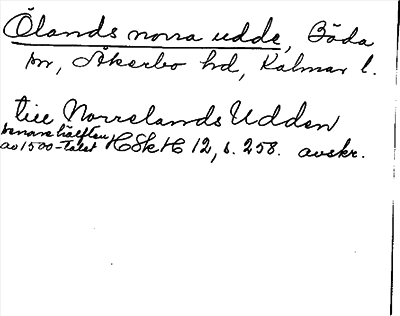 Ölands norra udde, Böda
sn, Åkerbo hd, Kalmar l.
till Norrelands Udden
senare hälften
av 1500-talet HSkH 12, s. 258. avskr.